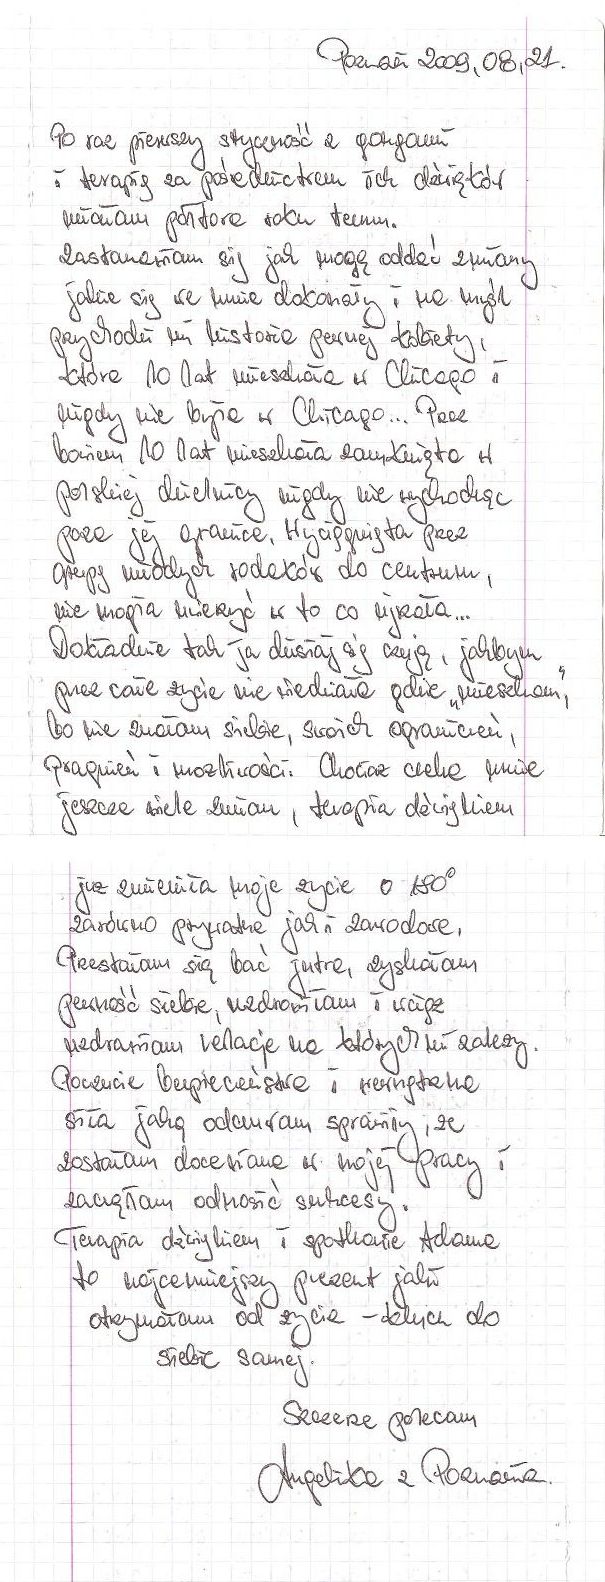 Poznań 2009,08,21.
Po raz pierwszy styczność z gongami
i terapią za pośrednictwem ich dźwięków
miałam półtora roku temu.
Zastanawiam się jak mogę oddać zmiany
jakie się we mnie dokonały i na myśl
przychodzi mi historia pewnej kobiety,
która 10 lat mieszkała w Chicago i
nigdy nie była w Chicago... Przez
bowiem 10 lat mieszkała zamknięta w
polskiej dzielnicy nigdy nie wychodząc
poza jej granice. Wyciągnięta przez
grupę młodych rodaków do centrum,
nie mogła wierzyć w to co ujrzała...
Dokładnie tak ja dzisiaj się czuję, jakbym
przez całe życie nie wiedziała gdzie "mieszkam",
bo nie znałam siebie, swoich ograniczeń,
pragnień i możliwości. Chociaż czeka mnie
jeszcze wiele zmian, terapia dźwiękiem
już zmieniła moje życie o 180°
zarówno prywatne jak i zawodowe.
Przestałam się bać jutra, zyskałam
pewność siebie, uzdrowiłam i wciąż
uzdrawiam relacje na których mi zależy.
Poczucie bezpieczeństwa i wewnętrzna
siła jaką odczuwam sprawiły, że
zostałam doceniana w mojej pracy i
zaczęłam odnosić sukcesy.
Terapia dźwiękiem i spotkanie Adama
to najcenniejszy prezent jaki
otrzymałam od życia - klucz do
siebie samej.
Szczerze polecam
Angelika z Poznania.